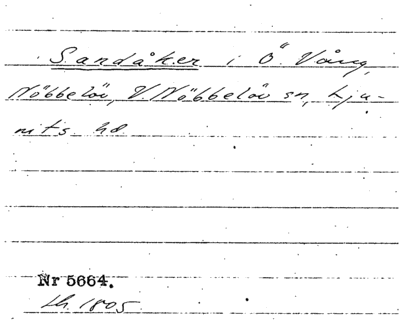 Sandåker i Ö. Vång,
Nöbbelöv, V. Nöbbelöv sn, Lju-
nits hd
Nr 5664.
Lh 1805